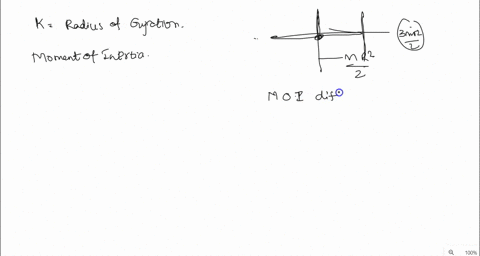 K = Radius of Gyration.
Moment of Inertia.
3mr²/2
MR²/2
M O I dif
100%